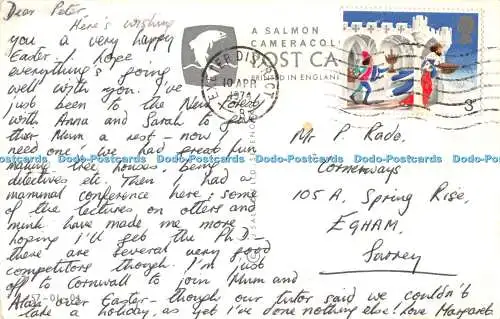 Dear Peter,
Here's wishing
you a very happy
Easter. I hope
everything's going
well with you. I've
just been to the New Forest
with Anna and Sarah to give
their Mum a rest – now I
need one! We had great fun
making tree houses, being
detectives etc. Then I had a
mammal conference here: some
of the lectures on otters and
mink have made me more
hoping I'll get the Ph.D –
there are several very good
competitors though. I'm just
off to Cornwall to join Mum and
Alan over Easter – though our tutor said we couldn't
take a holiday, as yet I've done nothing else! Love Margaret
A SALMON
CAMERACOL
POST CA
PRINTED IN ENGLAN
EXETER DISTRICT
10 APR
1974
3d
Mr P. Rade,
Corneways
105 A, Spring Rise,
EGHAM,
Surrey
Dodo-Postcards Dodo-Postcards Dodo-Postcards Dodo-Postcards Dodo-Postcards